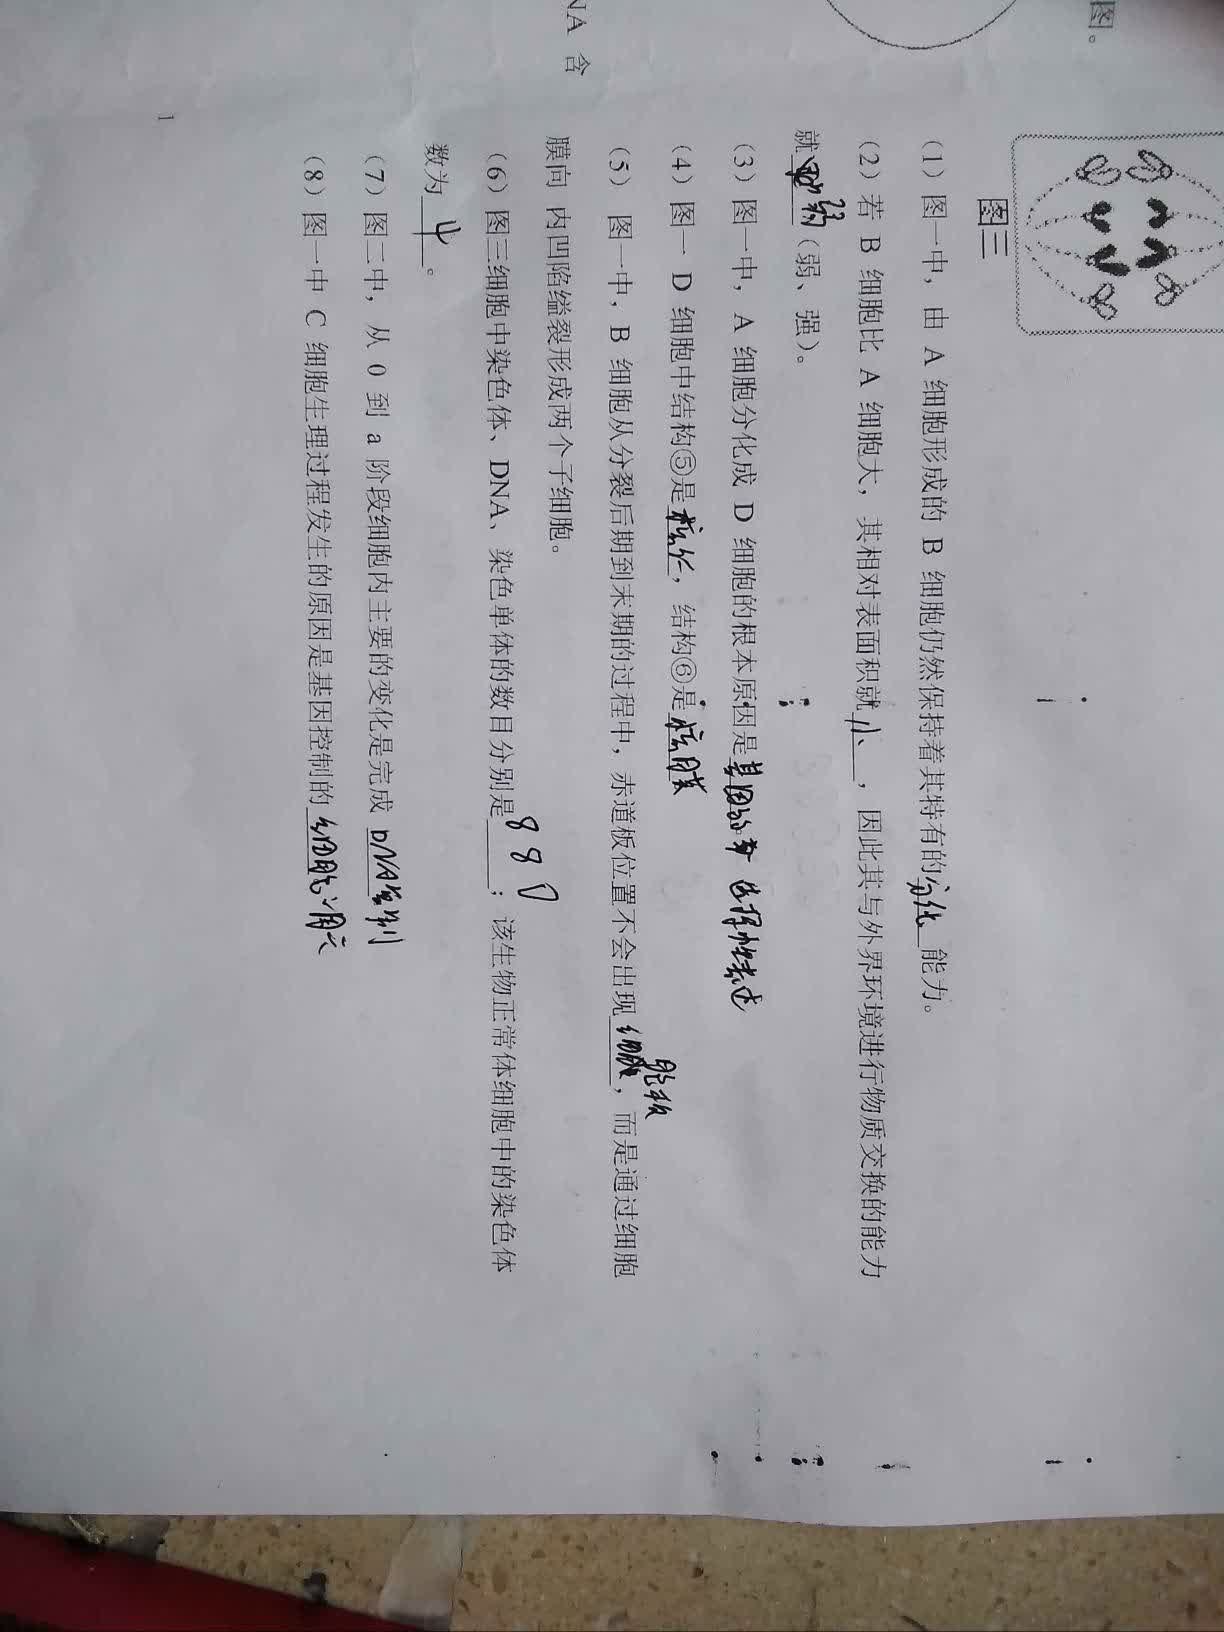 图。
图三
NA 含
（1）图一中，由 A 细胞形成的 B 细胞仍然保持着其特有的分化能力。
（2）若 B 细胞比 A 细胞大，其相对表面积就小，因此其与外界环境进行物质交换的能力
就越弱（弱、强）。
（3）图一中，A 细胞分化成 D 细胞的根本原因是基因的 选择性表达
（4）图一 D 细胞中结构⑤是核仁，结构⑥是核膜
（5） 图一中，B 细胞从分裂后期到末期的过程中，赤道板位置不会出现细胞板，而是通过细胞
膜向 内凹陷缢裂形成两个子细胞。
（6）图三细胞中染色体、DNA、染色单体的数目分别是8 8 0；该生物正常体细胞中的染色体
数为 4 。
（7）图二中，从 0 到 a 阶段细胞内主要的变化是完成 DNA复制
（8）图一中 C 细胞生理过程发生的原因是基因控制的 细胞凋亡
1